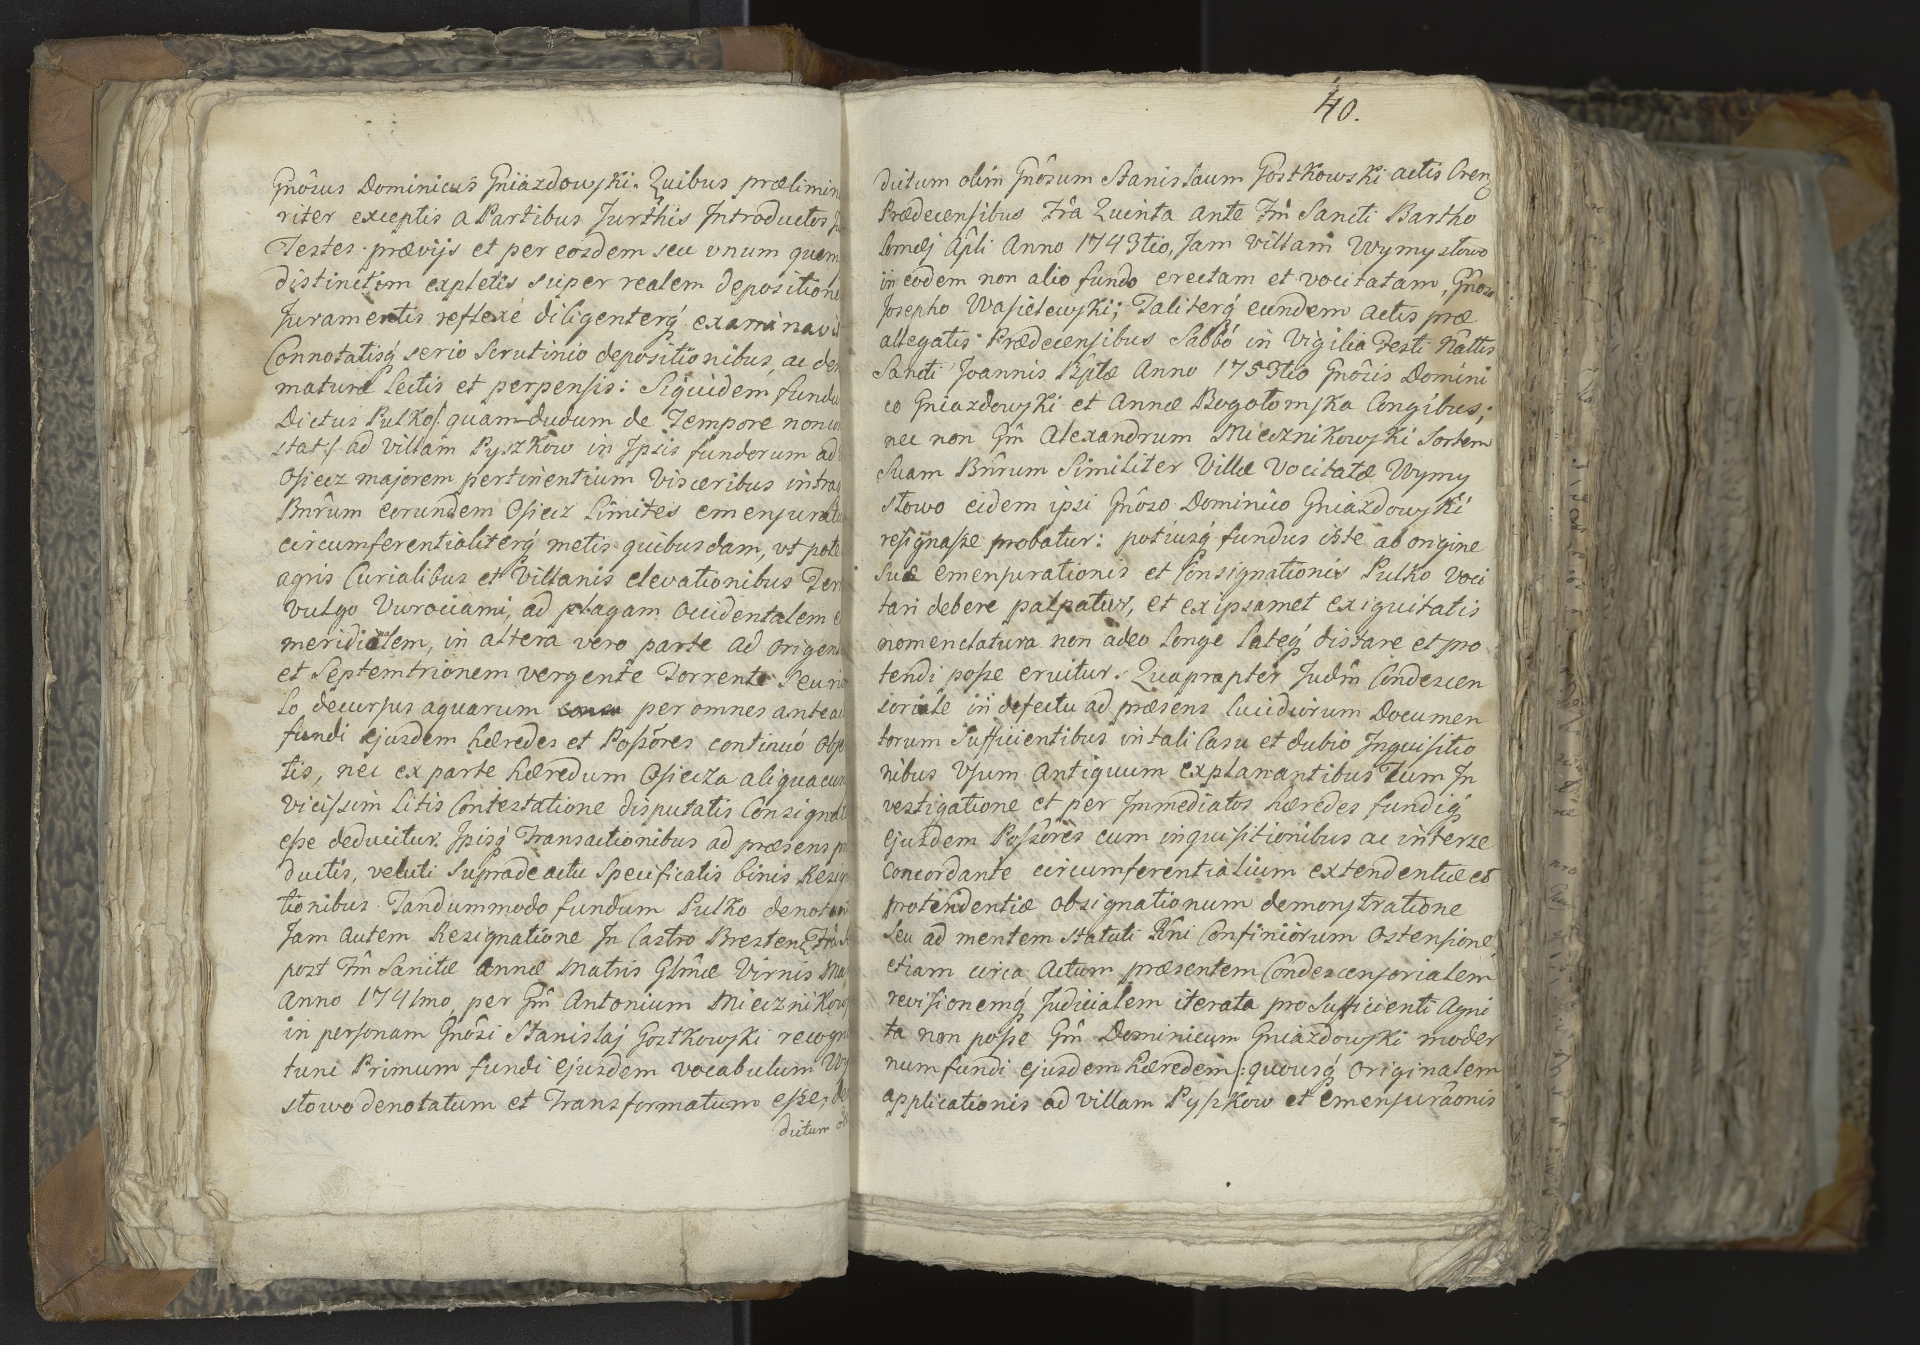 Gnôsus Dominicus Gniazdowski. Quibus prælimin
riter exceptis a Partibus Jurthis Introductos
Testes prævijs et per eosdem seu vnum quem
distinctim expletis super realem deposition
Juramentis reflexè diligenterq́ examinavit
Connotatisq́ serio Scrutinio depositionibus, ac
maturæ lectis et perpensis: Siquidem fundu
Dictus Pulko /: quam dudum de Tempore non
stat :/ ad villam Pyszkow in Ipsis fundorum ad
Osiecz majorem pertinentium visceribus intra
Bnrûm eorundem Osiecz limites emensurat
circumferentialiterq́ metis quibusdam, vt pote
agris Curialibus et Villanis elevationibus Ter
vulgo Vwrociami, ad plagam Occidentalem e
meridionalem, in altera vero parte ad Origen
et Septemtrionem vergente Torrente seu rivu
lo decursus aquarum per omnes antea
fundi ejusdem hæredes et Poßores continuó Obse
tis, nec ex parte hæredum Osiecza aliquacun
vicißim litis Contestatione disputatis Consignat
eße deducitur. Ipisq́ Transactionibus ad præsens pro
ductis, veluti Supradeactu Specificatis binis Resig
tionibus Tandummodo fundum Pulko denotari
Jam autem Resignatione In Castro Bresten Fria
post Fm̂ Sanctæ Annæ Matris Glŝmæ Virnis Ma
Anno 1741mo per Gm̂ Antonium Miecznikows
in personam Gnôsi Stanislaj Gostkowski recogn
tunc Primum fundi ejusdem vocabulum Wy
stowo denotatum et Transformatum eße, de
dictum
40.
dictum olim Gnôsum Stanislaum Gostkowski actis Cren
Prædecensibus Fr̂a Quinta ante Fm̂ Sancti Bartho
lomæj Apl̂i Anno 1743tio, Jam villam Wymystowo
in eodem non alio fundo erectam et vocitatam, Gnôso
Josepho Wasielewski; Taliterq́ eundem actis præ
allegatis Prædecensibus Sabbô in Vigilia Festi Nâttis
Sancti Joannis Bp̂tæ Anno 1753tio Gnôsis Domini
co Gniazdowski et Annæ Bogotomska Congibus;
nec non Gm̂ Alexandrum Miecznikowski Sortem
Suam Bnr̂um Similiter Villæ Vocitatæ Wymy
stowo eidem ipsi Gnôso Dominico Gniazdowski
resignaße probatur: potiusq́ fundus iste ab origine
suæ emensurationis et Consignationis Pulko voci
tari debere palpatur, et ex ipsamet exiguitatis
nomenclatura non adeo longe lateq́ distare et pro
tendi poße eruitur. Quapropter Judm̂ Condescen
soriale in defectu ad præsens lucidiorum Documen
torum Sufficientibus in tali Casu et dubio Inquisitio
nibus Vsum Antiquum explanantibus Tum In
vestigatione et per Immediatos hæredes fundiq́
ejusdem Poßores cum inquisitionibus ac interse
Concordante circumferentialium extendentiæ et
protendentiæ obsignationum demonstratione
seu ad mentem Statuti Rni Confiniorum Ostensione
etiam circa Actum præsentem Condescensorialem
revisionemq́ Judicialem iterata pro Sufficienti Agni
ta non poße Gm̂ Dominicum Gniazdowski moder
num fundi ejusdem hæredem /: quousq́ Originalem
applicationis ad villam Pyszkow et emensurâonis